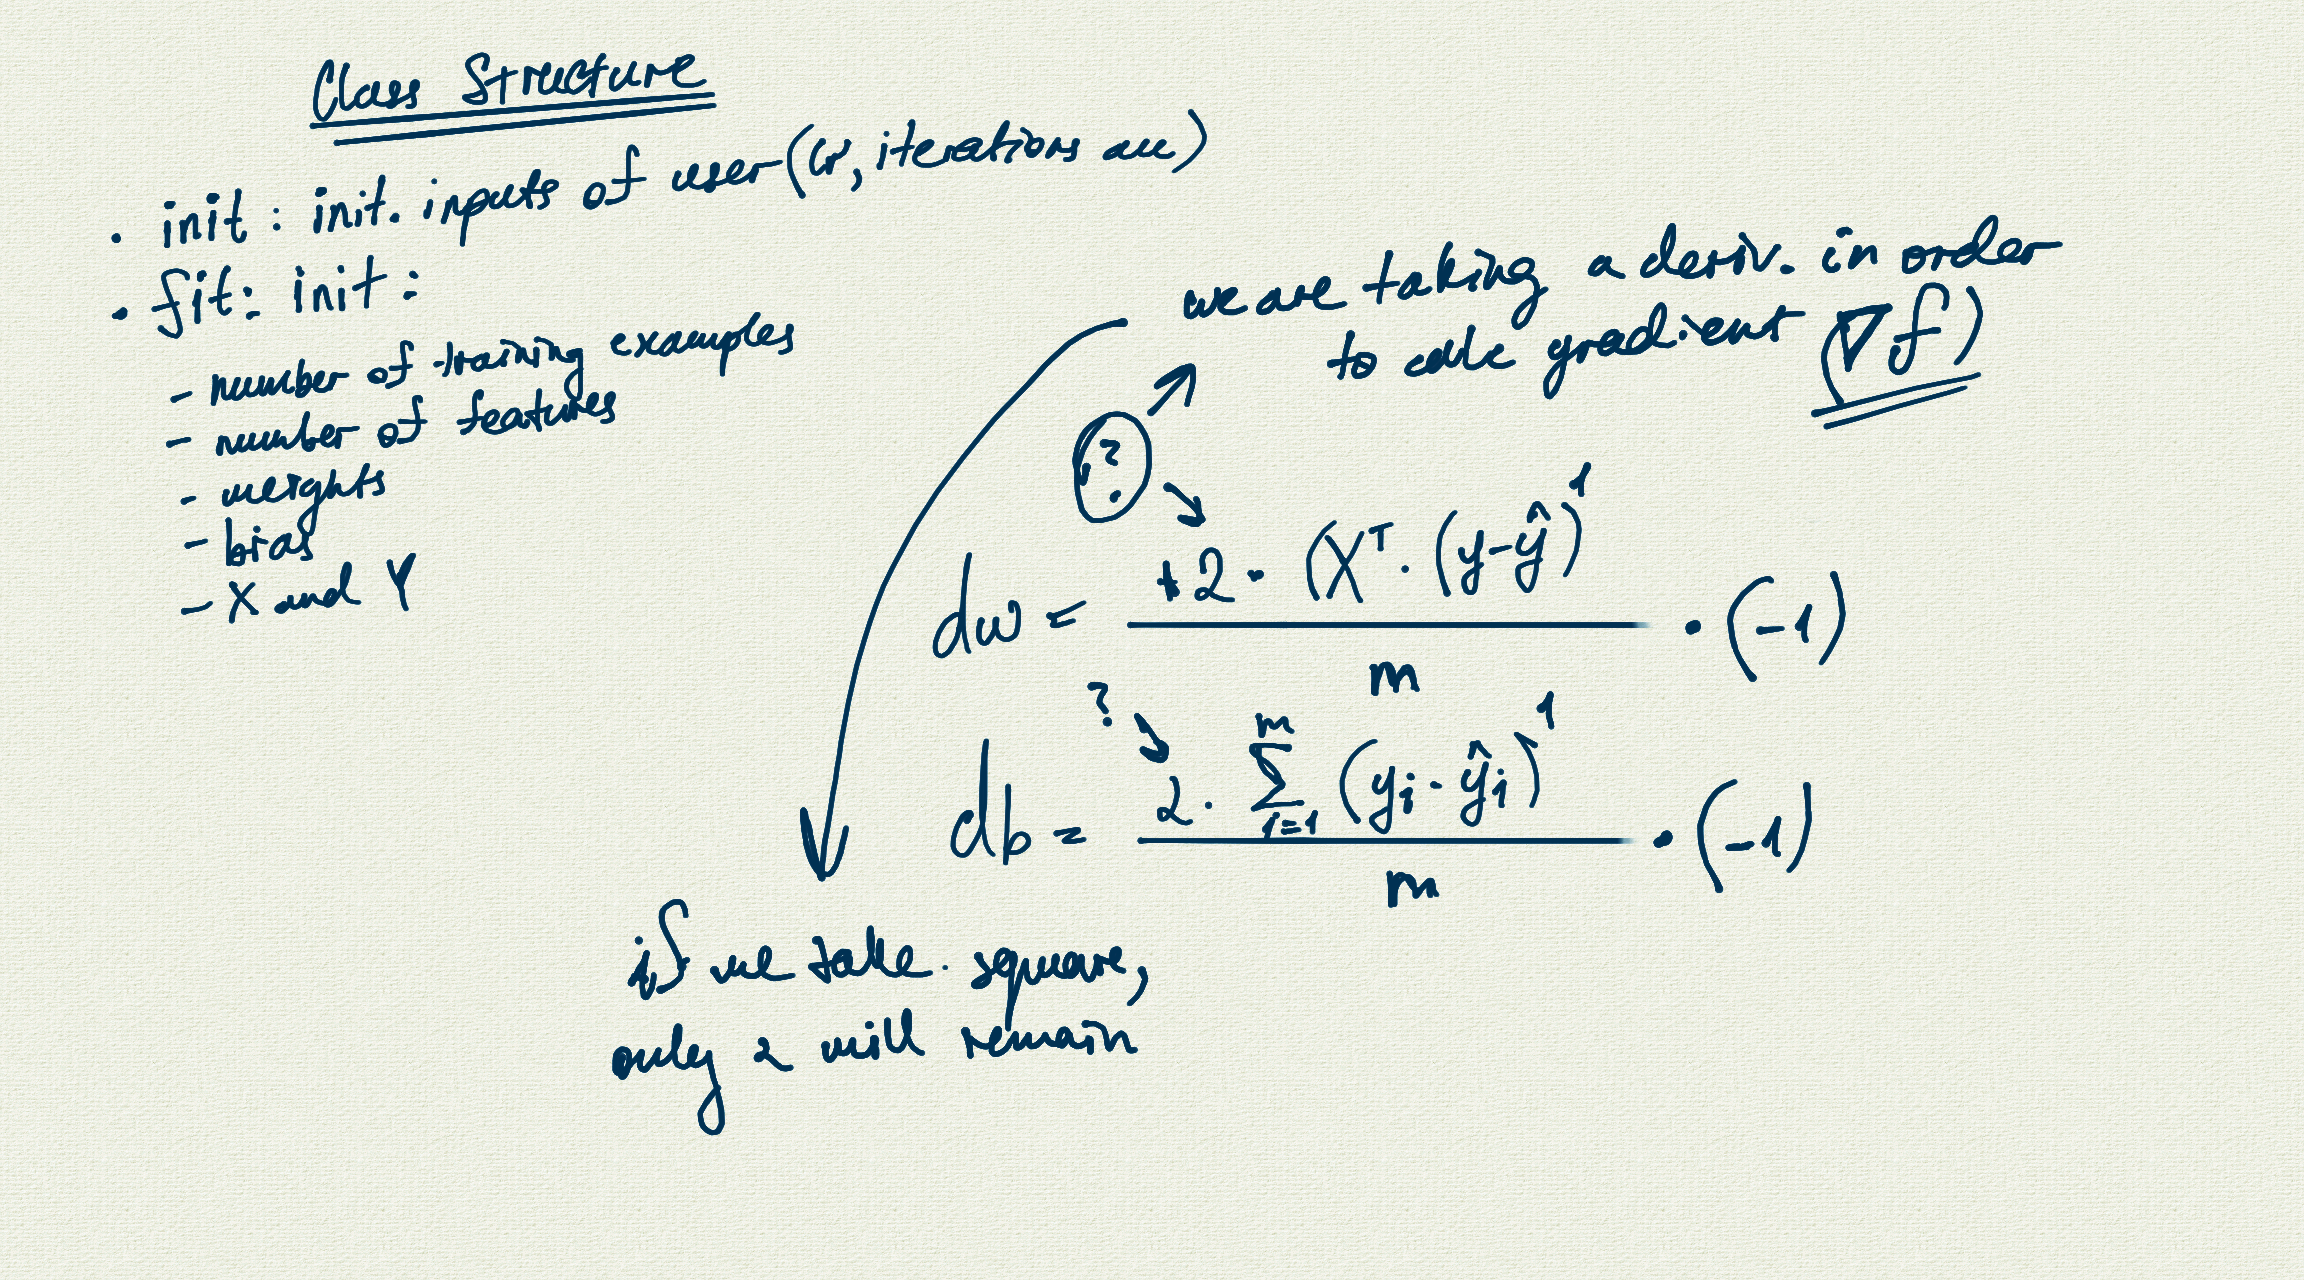 Class Structure
• init: init. inputs of user (lr, iterations
• fit: init:
- number of training examples
- number of features
- weights
- bias
- X and Y
we are taking a deriv. in order
to calc gradient (∇f)
?
dw = +2 · (Xᵀ · (y - ŷ)¹ / m · (-1)
?
db = 2 · Σᵢ₌₁ᵐ (yᵢ - ŷᵢ)¹ / m · (-1)
if we take square,
only 2 will remain